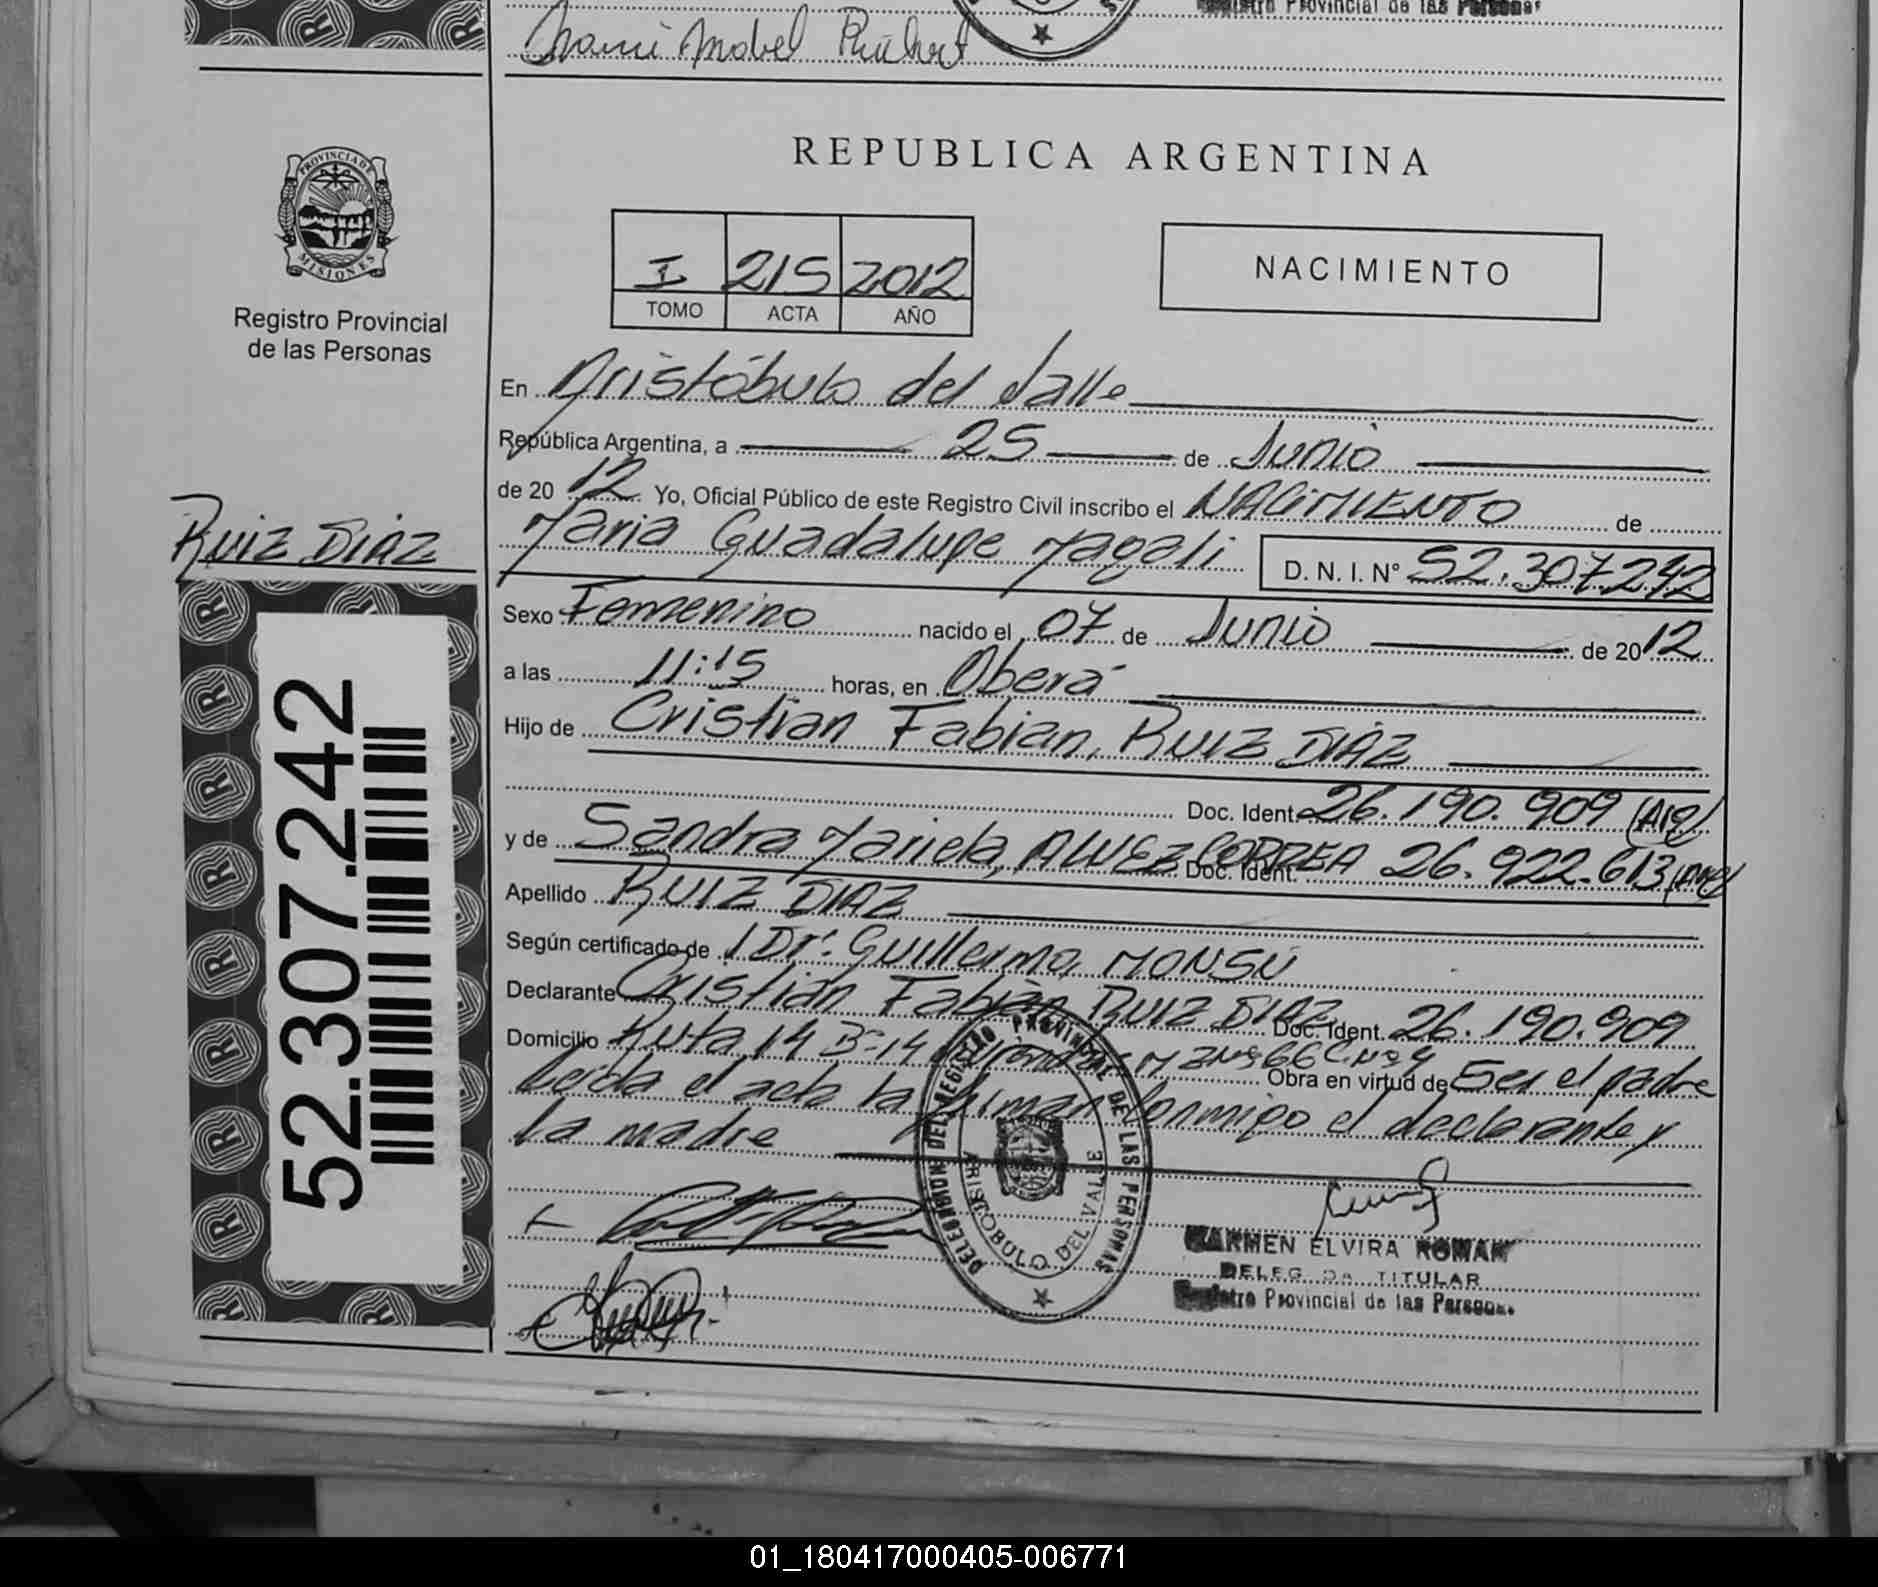 Registro Provincial de las Personas
REPUBLICA ARGENTINA
PROVINCIA DE
MISIONES
Registro Provincial
de las Personas
I 215 2012
TOMO ACTA AÑO
NACIMIENTO
En Aristóbulo del Valle
República Argentina, a 25 de Junio
de 20 12 Yo, Oficial Público de este Registro Civil inscribo el NACIMIENTO de
Ruiz DIAZ
Maria Guadalupe Magali D. N. I. N° 52.307.242
Sexo Femenino nacido el 07 de Junio de 2012
a las 11:15 horas, en Oberá
Hijo de Cristian Fabian, RUIZ DIAZ
Doc. Ident. 26.190.909 (Arg)
y de Sandra Mariela, ALVEZ CORREA Doc. Ident. 26.922.613 (Arg)
Apellido RUIZ DIAZ
Según certificado de Dr. Guillermo MONSU
Declarante Cristian Fabián RUIZ DIAZ Doc. Ident. 26.190.909
Domicilio Ruta 14 Obra en virtud de Ser el padre
el acta la firman conmigo el declarante y
la madre
DELEGACION DEL REGISTRO PROVINCIAL DE LAS PERSONAS
ARISTOBULO DEL VALLE
CARMEN ELVIRA ROMAN
DELEGADA TITULAR
Registro Provincial de las Personas
52.307.242
01_180417000405-006771